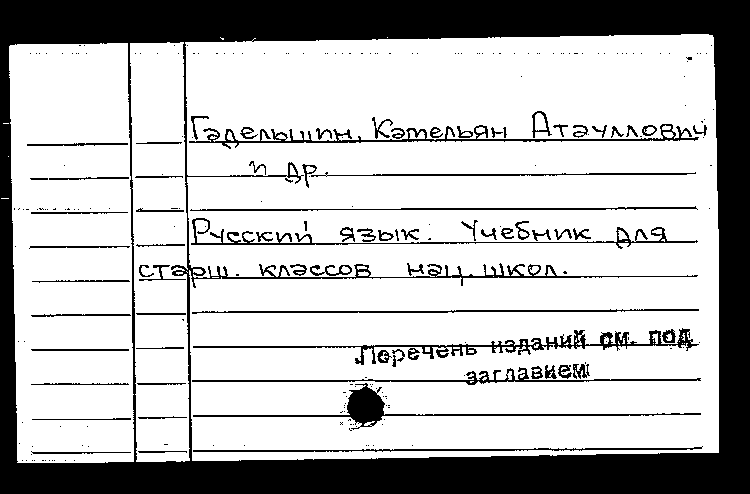 Гадельшин, Камельян Атауллович
и др.
Русский язык. Учебник для
старш. классов нац. школ.
Перечень изданий см. под
заглавием